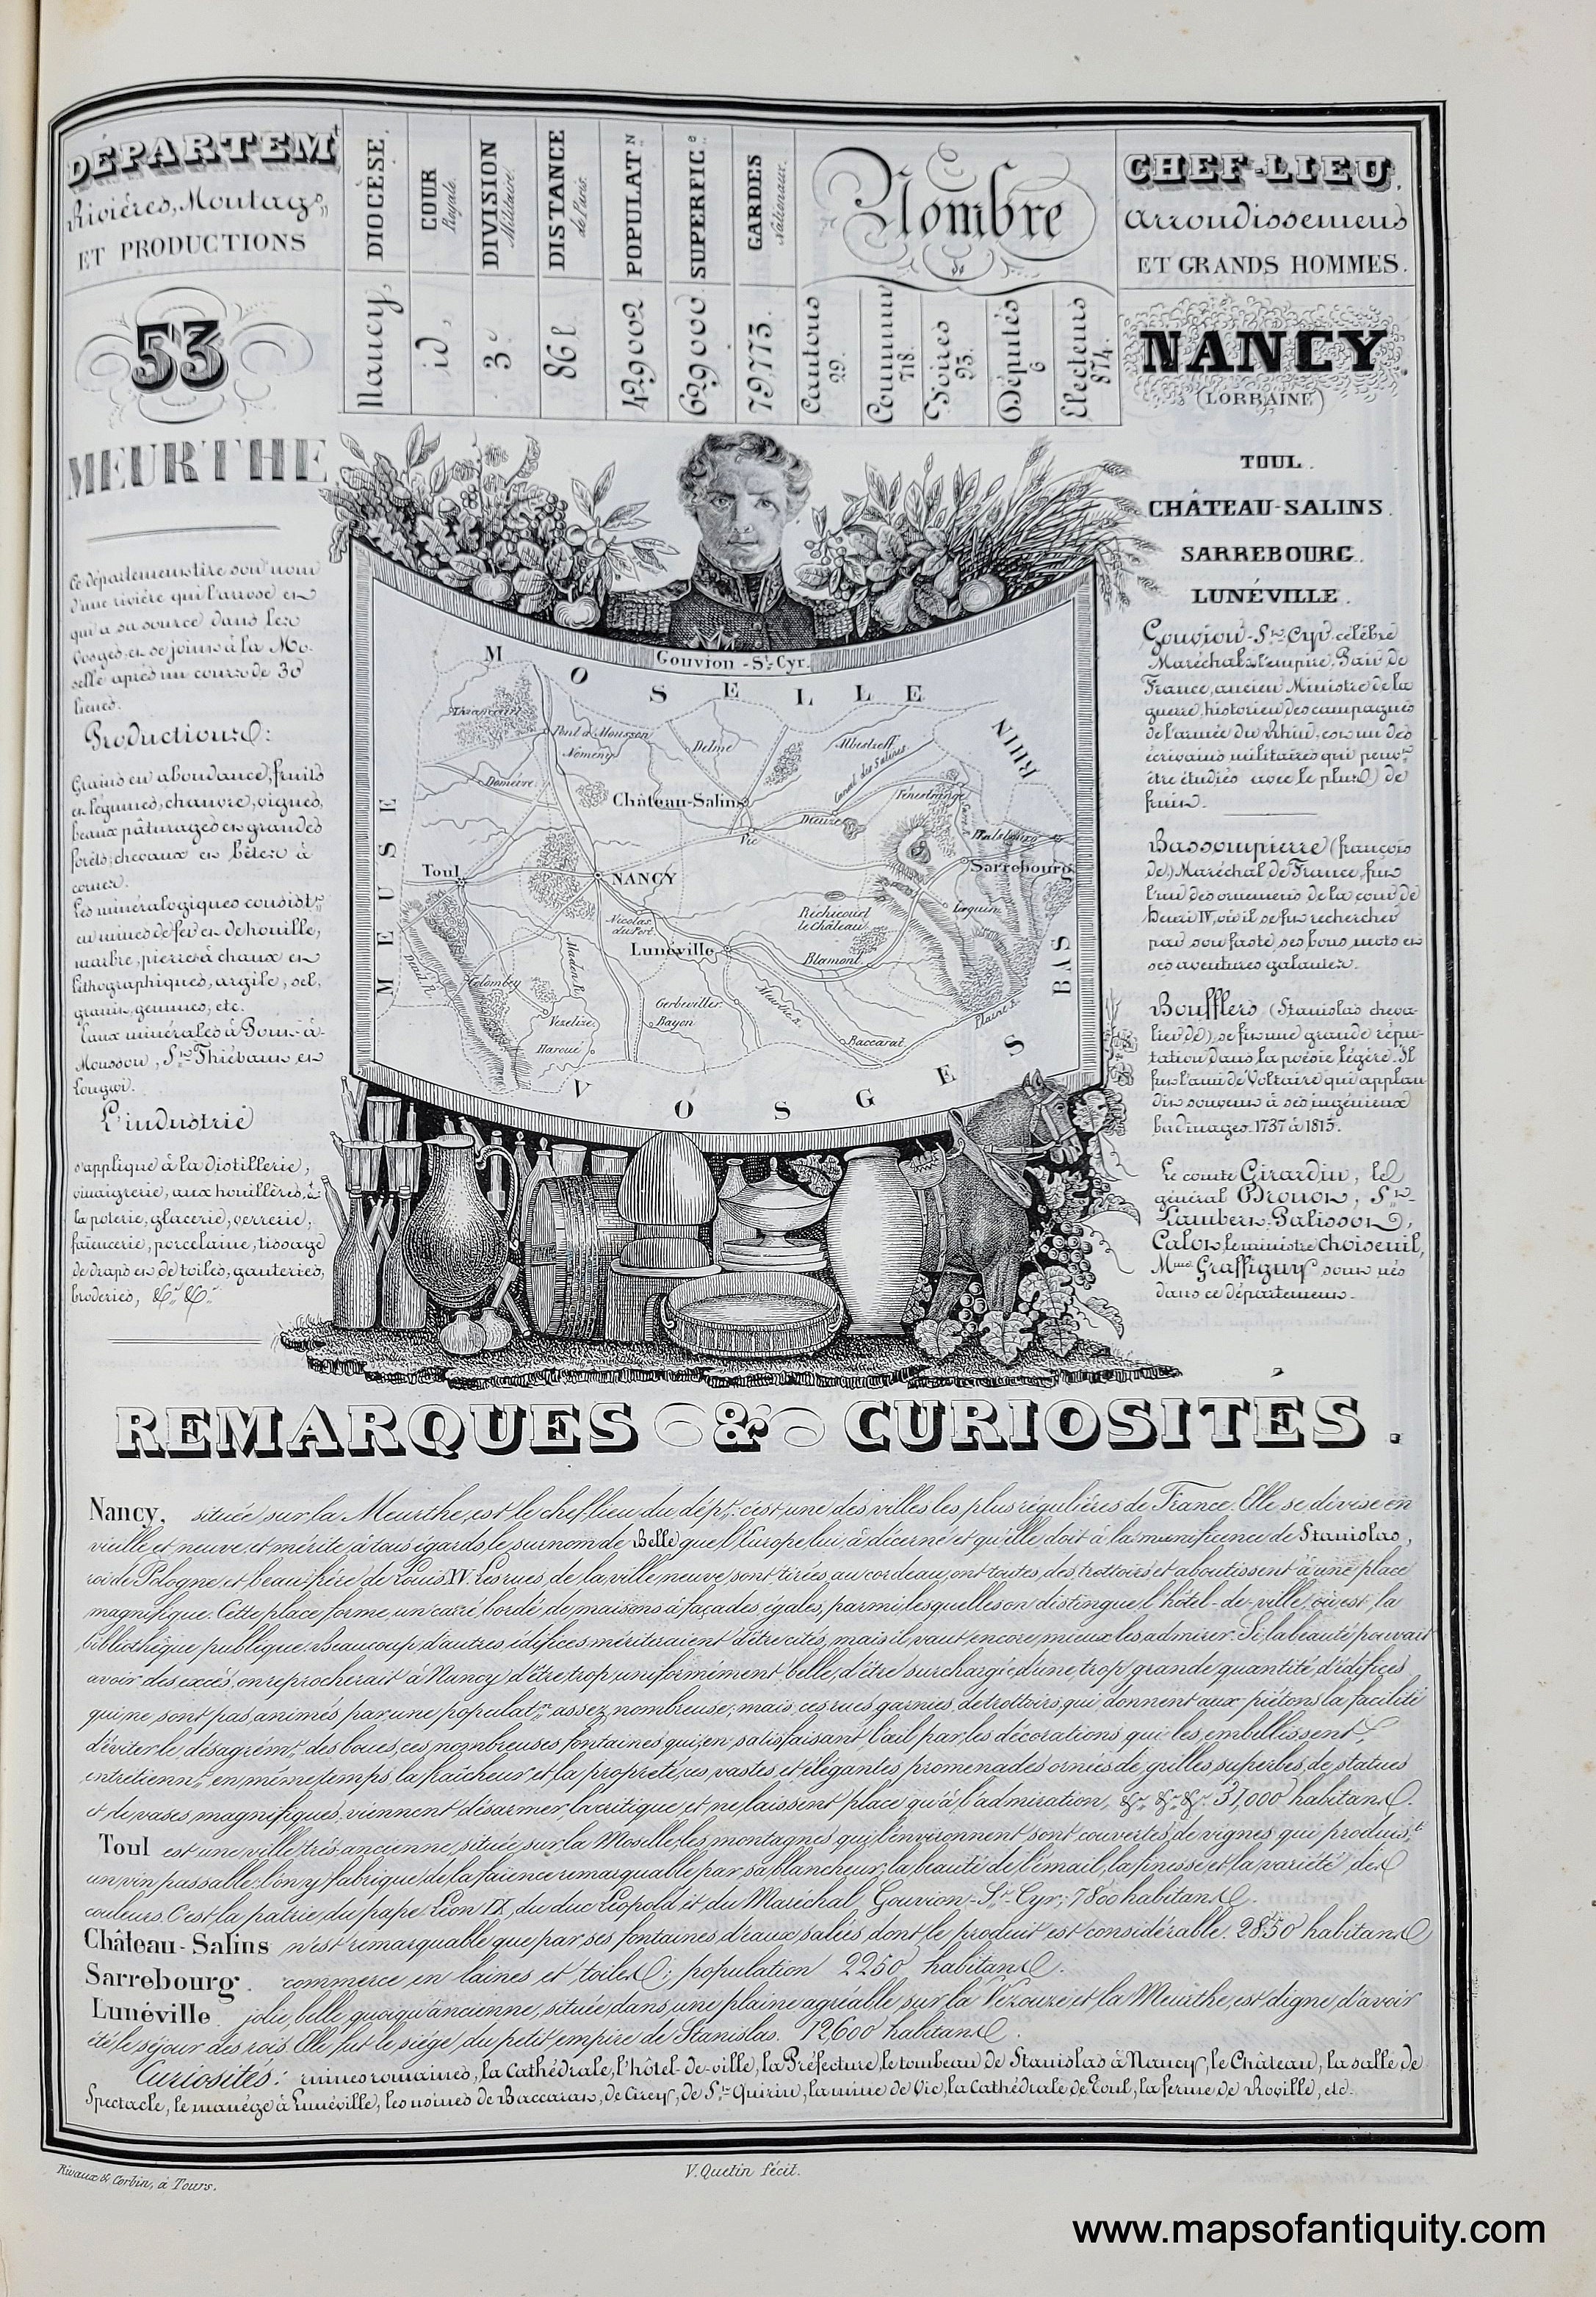 DÉPARTEMt
Rivières, Montags,,
ET PRODUCTIONS
DIOCÈSE.
COUR
Royale.
DIVISION
Militaire.
DISTANCE
de Paris.
POPULATN
SUPERFICe
GARDES
Nationaux.
Nombre
de
CHEF-LIEU,
Arrondissemens
ET GRANDS HOMMES.
53
Nancy,
id,
3e
86 l
429002
629000
79,775.
Cantons
29.
Communes
718.
Foires
93.
Députés
6
Electeurs
874.
NANCY.
(LORRAINE)
MEURTHE
Ce département tire son nom
d'une rivière qui l'arrose et
qui a sa source dans les
Vosges et se joint à la Mo-
selle après un cours de 30
lieues.
Productions:
Grains en abondance, fruits
et légumes, chanvre, vignes,
beaux pâturages et grandes
forêts; chevaux et bêtes à
cornes.
Les minéralogiques consistt
en mines de fer et de houille,
marbre, pierre à chaux et
lithographiques, argile, sel,
grains, gemmes, etc.
Eaux minérales à Pont-à-
Mousson, Ste Thiébaut et
Longwi.
L'industrie
s'applique à la distillerie,
vinaigrerie, aux houillères, à
la poterie, glacerie, verrerie,
faïencerie, porcelaine, tissage
de draps et de toiles, ganteries,
broderies, &c. &c.
Gouvion-St-Cyr.
MOSELLE
RHIN
BAS
MEUSE
VOSGES
Thiaucourt
Pont à Mousson
Nomeny
Delme
Albestroff
Canal des Salines
Domèvre
Château-Salins
Fénestrange
Dieuze
Vic
Phalsbourg
Sarrebourg
Toul
NANCY
Nicolas
du Port.
Lorquin
Réchicourt
le château
Lunéville
Blamont
Madon R.
Colombey
Gerbeviller
Bayon
Meurthe R.
Vezelize
Haroué
Baccarat
Plaine R.
TOUL.
CHÂTEAU-SALINS.
SARREBOURG.
LUNÉVILLE.
Gouvion-St-Cyr célèbre
Maréchal d l'empire, Pair de
France, ancien Ministre de la
guerre, historien des campagnes
de l'armée du Rhin, est un des
écrivains militaires qui peuvt
être étudiés avec le plus de
fruit.
Bassompierre (françois
de) Maréchal de France, fut
l'un des ornemens de la cour de
Henri IV, où il se fit rechercher
par son faste, ses bons mots et
ses aventures galantes.
Boufflers (Stanislas cheva-
lier de), se fit une grande répu-
tation dans la poésie légère. Il
fut l'ami de Voltaire qui applau-
dit souvent à ses ingénieux
badinages. 1737 à 1815.
Le comte Girardin, le
général Drouot, St-
Lambert, Palissot,
Calot, le ministre Choiseuil,
Mme Graffigny sont nés
dans ce département.
REMARQUES & CURIOSITÉS.
Nancy, située sur la Meurthe, est le chef lieu du dépt: c'est une des villes les plus régulières de France. Elle se divise en
vieille et neuve et mérite à tous égards le surnom de Belle que l'Europe lui a décerné et qu'elle doit à la munificence de Stanislas,
roi de Pologne et beau-père de Louis XV. Les rues de la ville neuve sont tirées au cordeau, ont toutes des trottoirs et aboutissent à une place
magnifique. Cette place forme un carré bordé de maisons à façades égales, parmi lesquelles on distingue l'hôtel-de-ville, où est la
bibliothèque publique. Beaucoup d'autres édifices mériteraient d'être cités, mais il vaut encore mieux les admirer. Si la beauté pouvait
avoir des excès, on reprocherait à Nancy d'être trop uniformément belle, d'être surchargée d'une trop grande quantité d'édifices
qui ne sont pas animés par une populatn assez nombreuse; mais ces rues garnies de trottoirs, qui donnent aux piétons la facilité
d'éviter le désagrémt des boues, ces nombreuses fontaines qui, en satisfaisant l'œil par les décorations qui les embellissent,
entretiennt en même temps la fraîcheur et la propreté, ces vastes et élégantes promenades ornées de grilles superbes, de statues
et de vases magnifiques, viennent désarmer la critique et ne laissent place qu'à l'admiration, &c. &c. &c. 31,000 habitans.
Toul est une ville très ancienne, située sur la Moselle, les montagnes qui l'environnent sont couvertes de vignes qui produist
un vin passable: l'on y fabrique de la faïence remarquable par sa blancheur, la beauté de l'émail, la finesse et la variété des
couleurs. C'est la patrie du pape Léon IX, du duc Léopold et du Maréchal Gouvion-St-Cyr; 7800 habitans.
Château-Salins n'est remarquable que par ses fontaines d'eaux salées dont le produit est considérable. 2850 habitans
Sarrebourg. commerce en laines et toiles; population 2250 habitans.
Lunéville. jolie, belle quoiqu'ancienne, située dans une plaine agréable sur la Vézouze et la Meurthe, est digne d'avoir
été le séjour des rois. Elle fut le siège du petit empire de Stanislas. 12,600 habitans.
Curiosités: ruines romaines, la Cathédrale, l'hôtel-de-ville, la Préfecture, le tombeau de Stanislas à Nancy, le Château, la salle de
Spectacle, le manège à Lunéville, les usines de Baccarat, de Cirey, de St-Quirin, la mine de Vic, la Cathédrale de Toul, la ferme de Roville, etc.
Rivaux & Corbin, à Tours.
V. Quetin fécit.
www.mapsofantiquity.com